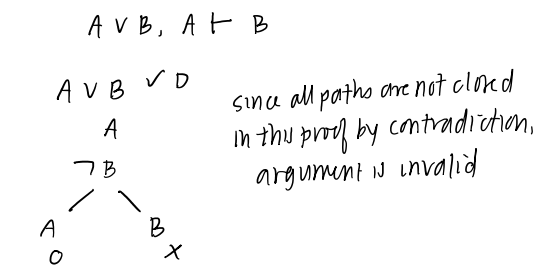 A ∨ B, A ⊢ B
A ∨ B ✓ D
A
¬ B
A B
O X
since all paths are not closed
in this proof by contradiction,
argument is invalid